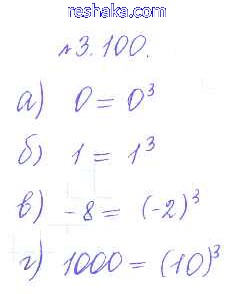 reshaka.com
№3.100.
а) 0 = 0³
б) 1 = 1³
в) -8 = (-2)³
г) 1000 = (10)³